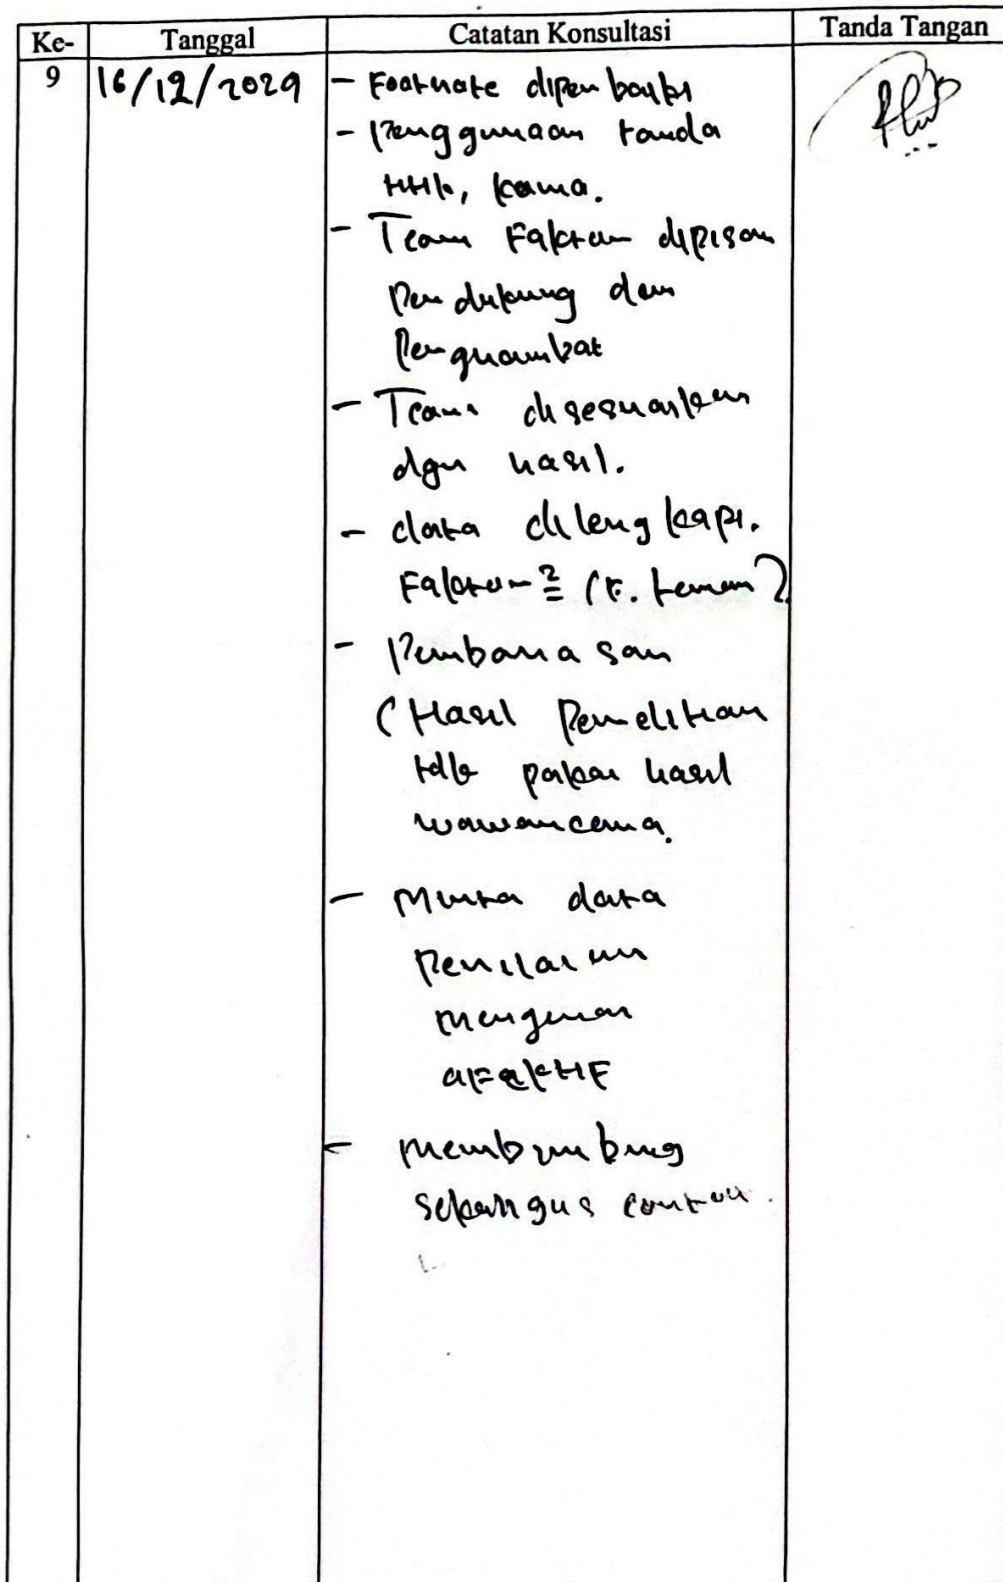 Ke- Tanggal Catatan Konsultasi Tanda Tangan
9 16/12/2024 - Footnote diperbaiki
- Penggunaan tanda
titik, koma.
- Teori Faktor dipisah
Pendukung dan
Penghambat
- Teori disesuaikan
dgn hasil.
- data dilengkapi.
Faktor2 (F. teman?
- Pembahasan
(Hasil Penelitian
tdk pakai hasil
wawancara.
- Minta data
Penilaian
mengenai
afektif
- membimbing
sekaligus contoh.